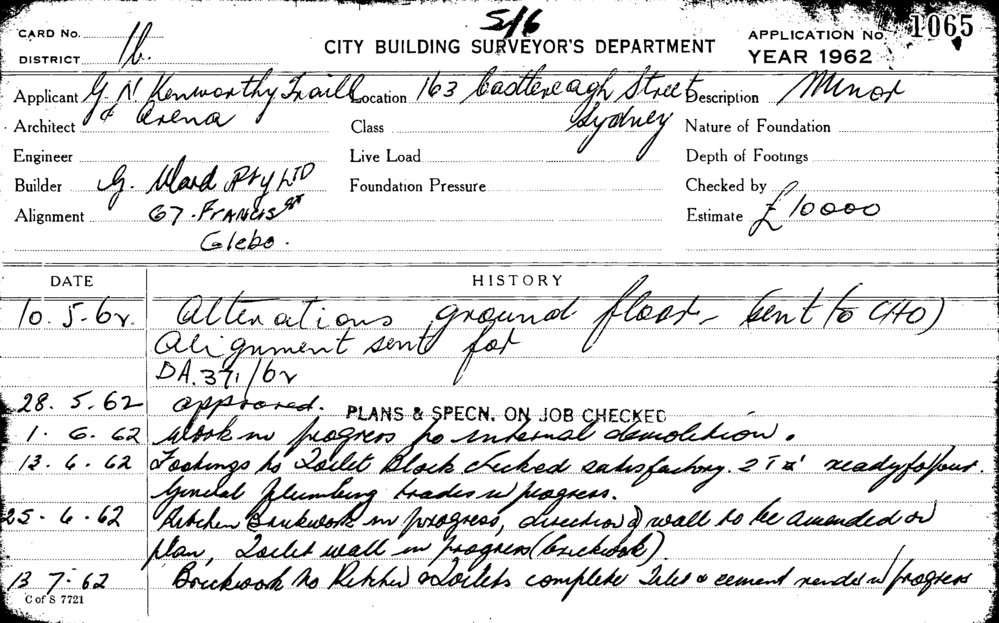 5/6
1065
CARD No.
DISTRICT 1b.
CITY BUILDING SURVEYOR'S DEPARTMENT
APPLICATION No.
YEAR 1962
Applicant G N Kenworthy Traill Location 163 Castlereagh Street Description Minor
Architect & Arena Class Sydney Nature of Foundation
Engineer Live Load Depth of Footings
Builder G. Ward Pty LTD Foundation Pressure Checked by
Alignment 67. FRANCIS ST Estimate £10000
Glebe.
DATE HISTORY
10. 5. 62. Alterations ground floor - Sent to CHO)
Alignment sent for
DA. 371/62
28. 5. 62 approved. PLANS & SPECN. ON JOB CHECKED
1. 6. 62 Work in progress to internal demolition.
13. 6. 62 Footings to Toilet Block checked satisfactory. ready to pour.
General plumbing trades in progress.
25. 6. 62 Kitchen Brickwork in progress, direction of wall to be amended on
plan, Toilet wall in progress (brickwork).
13 7. 62 Brickwork to Kitchen & Toilets complete Tiles & cement render in progress
C of S 7721